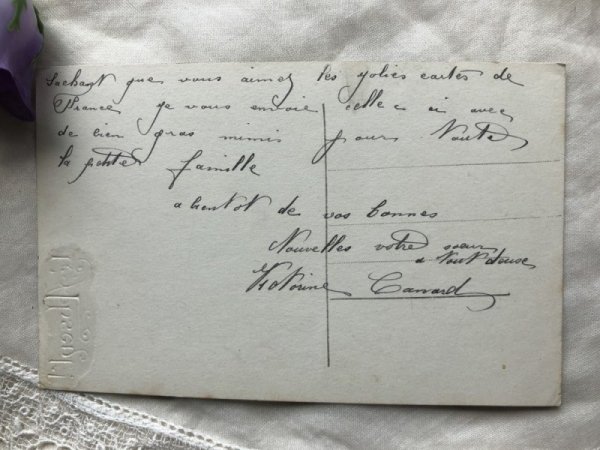 Sachant que vous aimez les jolies cartes de
France je vous envoie celle ci avec
de bien gros mimis pour toute
la petite famille
a bientot de vos bonnes
Nouvelles votre soeur
a tout
Victorine Canard